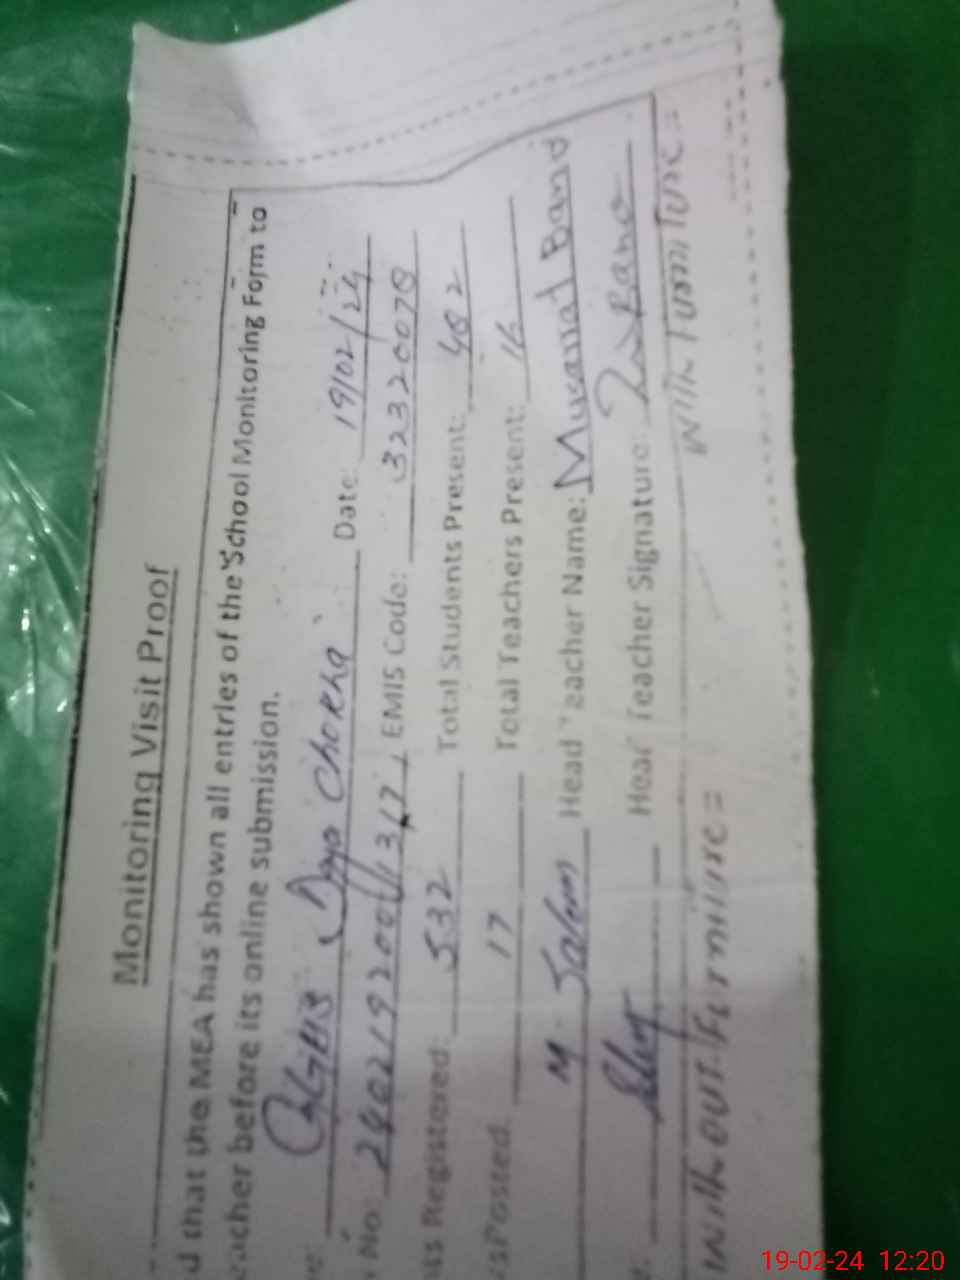 Monitoring Visit Proof
d that the MEA has shown all entries of the School Monitoring Form to
acher before its online submission.
Chokha Date: 19/02/24
No: EMIS Code: 32320078
ts Registered: 532 Total Students Present: 482
s Posted: 17 Total Teachers Present: 16
M. Salem Head Teacher Name: Musarrat Bano
Head Teacher Signature: Bano
With out Furniture = With Furniture =
19-02-24 12:20